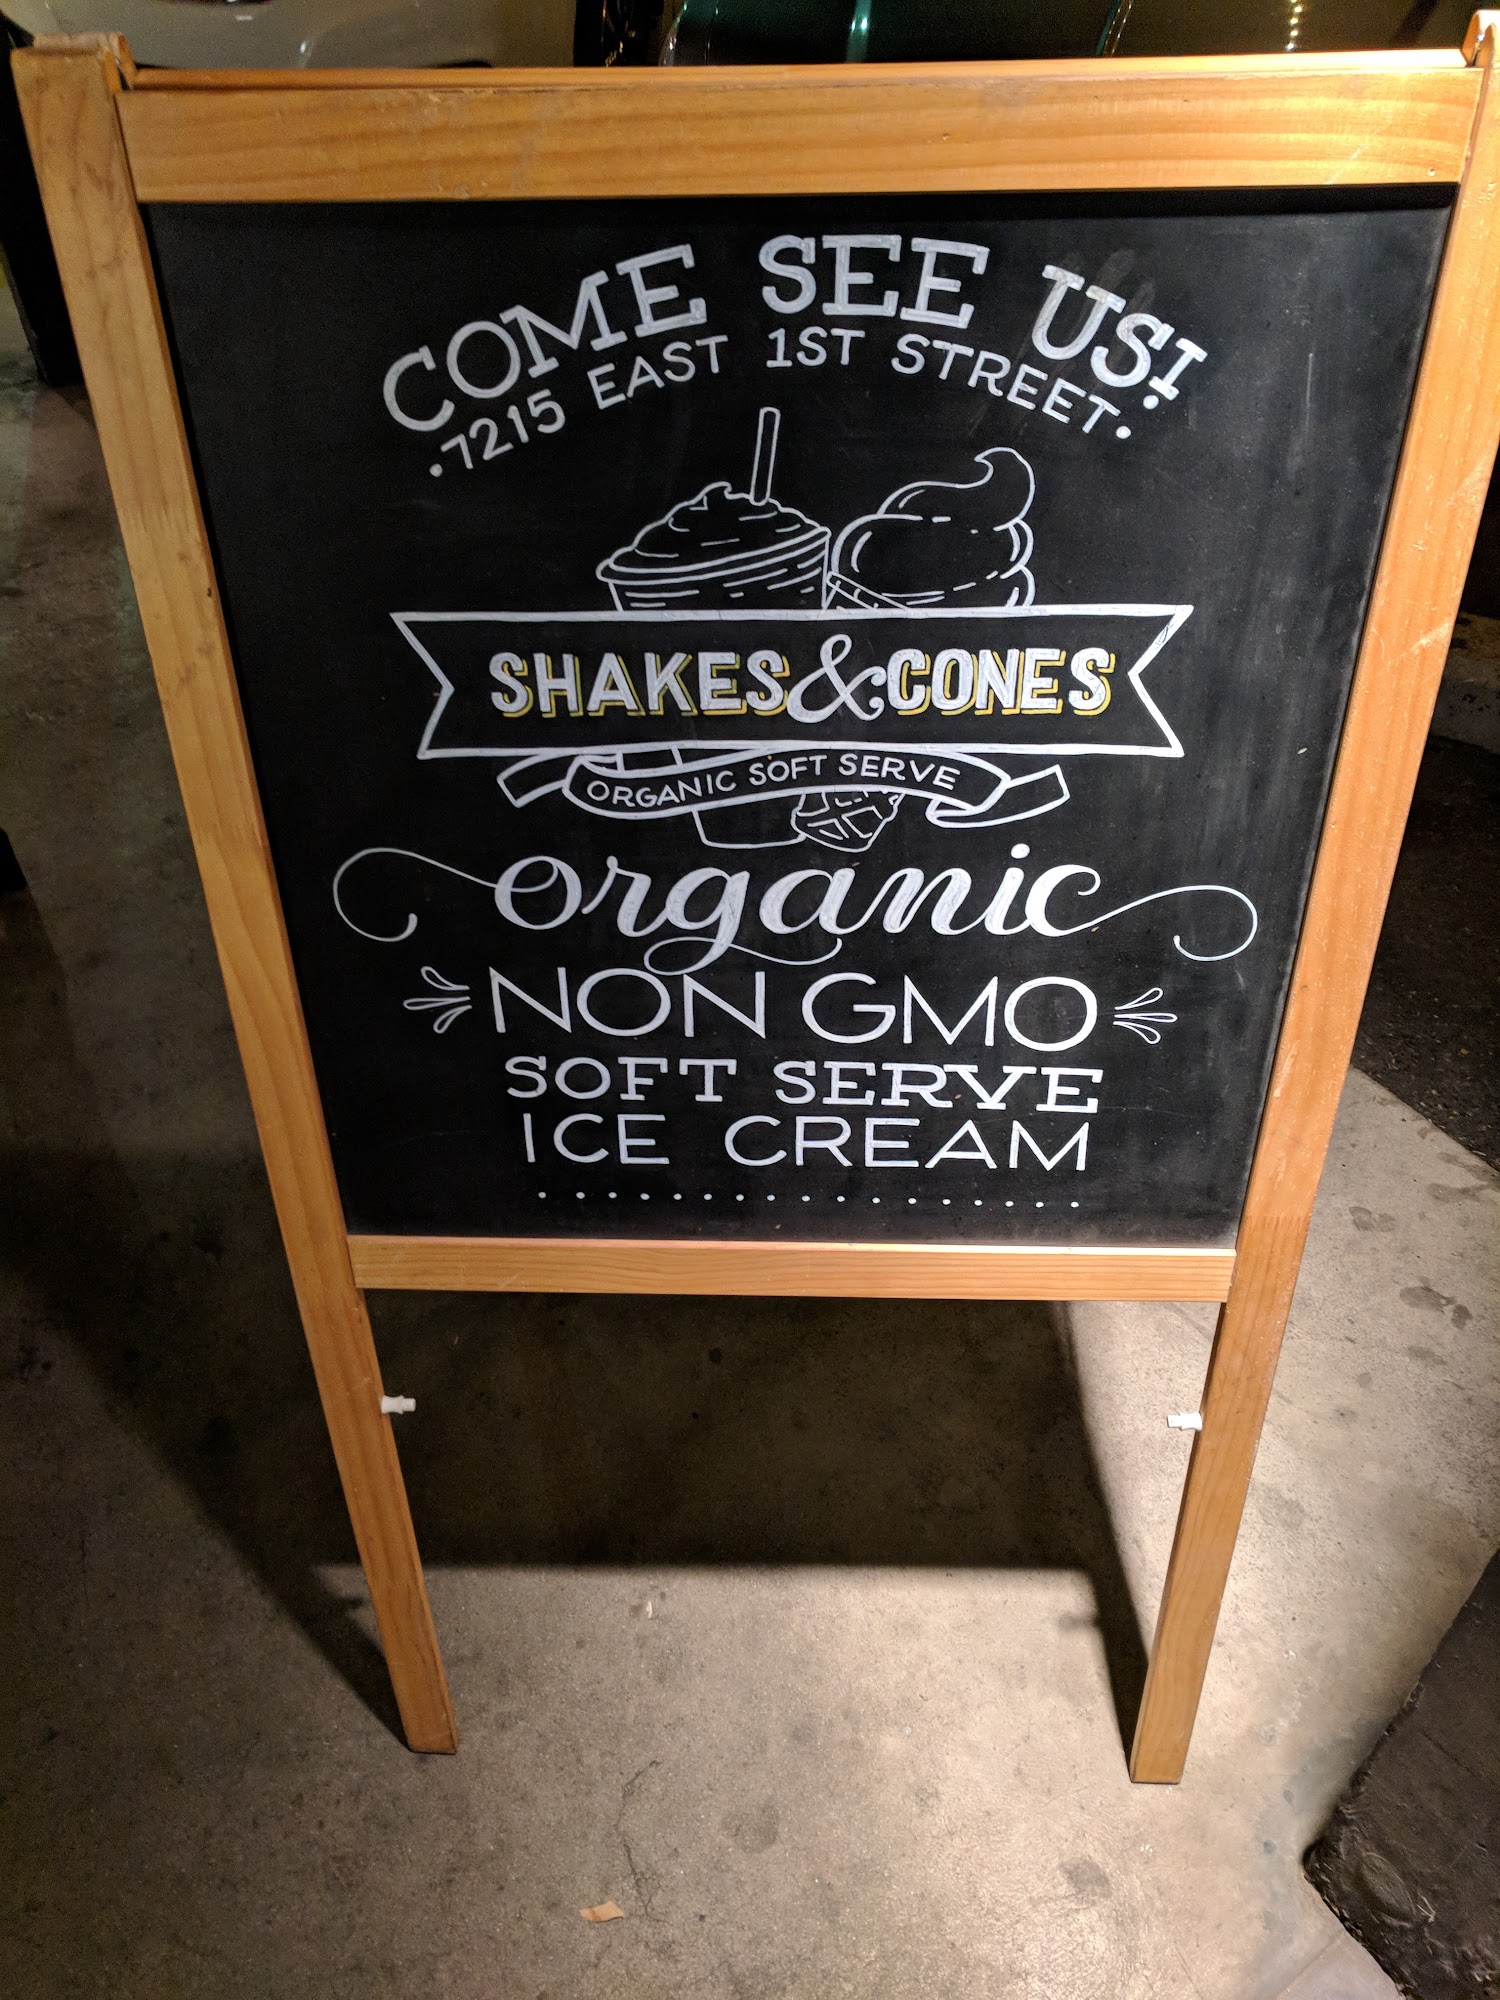 COME SEE US!
.7215 EAST 1ST STREET.
SHAKES & CONES
ORGANIC SOFT SERVE
organic
NON GMO
SOFT SERVE
ICE CREAM